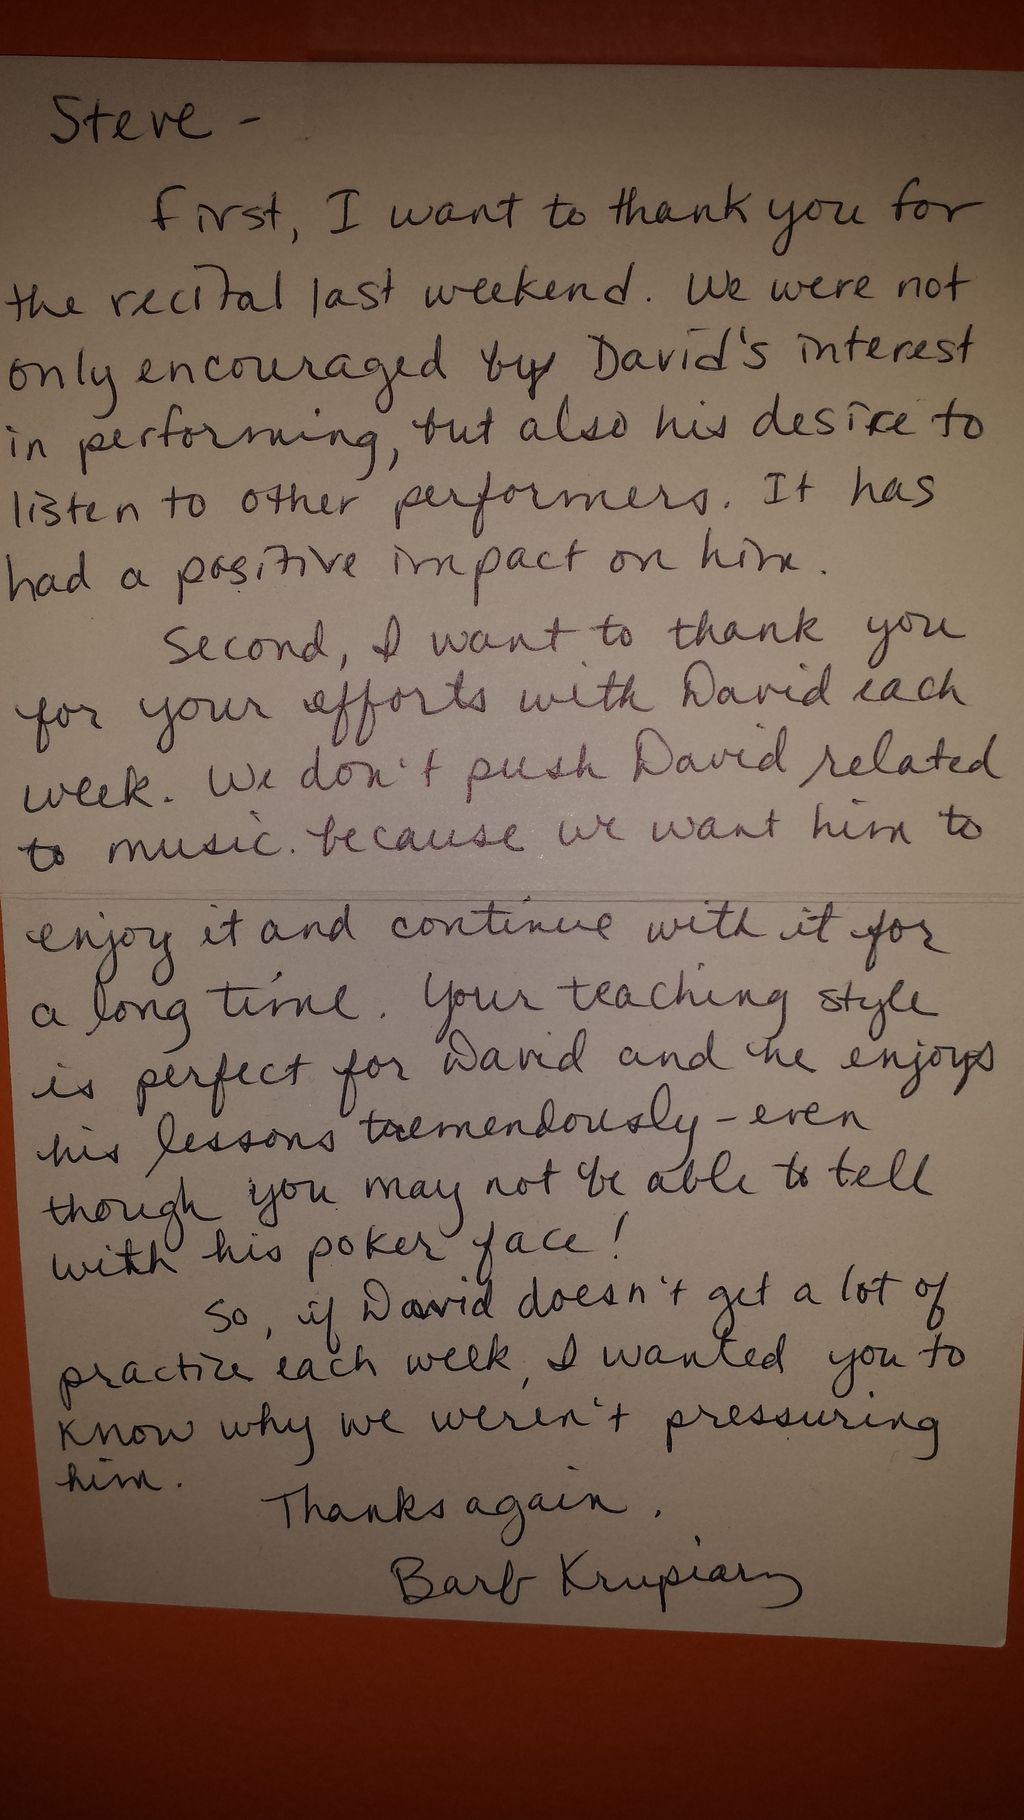 Steve -
First, I want to thank you for
the recital last weekend. We were not
only encouraged by David's interest
in performing, but also his desire to
listen to other performers. It has
had a positive impact on him.
Second, I want to thank you
for your efforts with David each
week. We don't push David related
to music because we want him to
enjoy it and continue with it for
a long time. Your teaching style
is perfect for David and he enjoys
his lessons tremendously - even
though you may not be able to tell
with his poker face!
So, if David doesn't get a lot of
practice each week, I wanted you to
know why we weren't pressuring
him.
Thanks again.
Barb